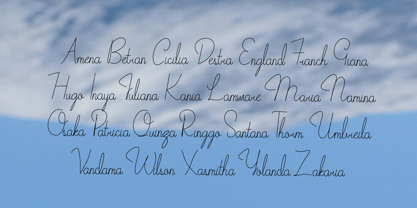 Amena Betran Cicilia Destra England Franch Giana
Hugo Inaya Juliana Kania Lamware Maria Namina
Osaka Patricia Quinza Ringgo Santana Thorm Umbrella
Vandama Wilson Xasmitha Yolanda Zakaria